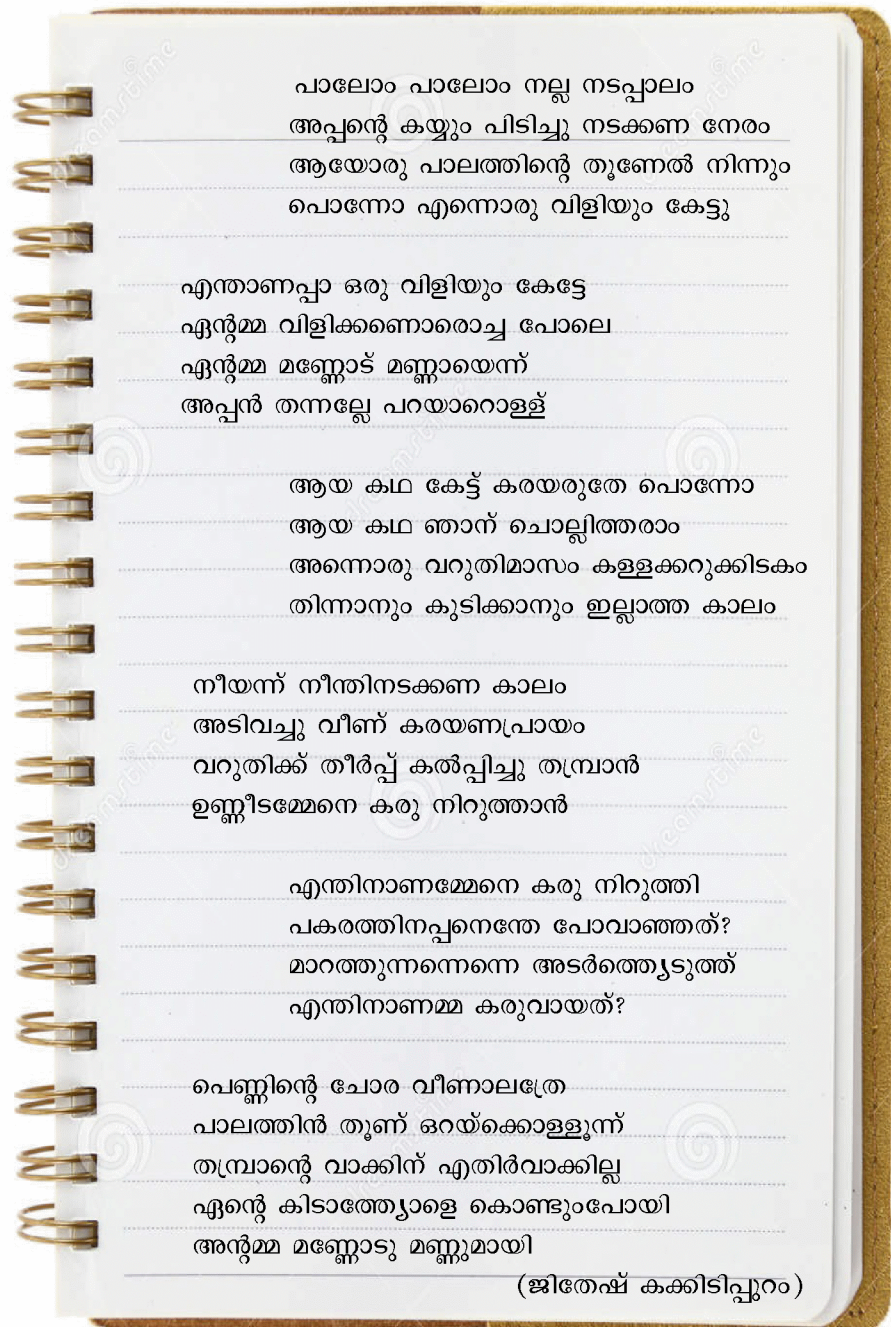 പാലോം പാലോം നല്ല നടപ്പാലം
അപ്പന്റെ കയ്യും പിടിച്ചു നടക്കണ നേരം
ആയോരു പാലത്തിന്റെ തൂണേൽ നിന്നും
പൊന്നോ എന്നൊരു വിളിയും കേട്ടു
എന്താണപ്പാ ഒരു വിളിയും കേട്ടേ
ഏന്റമ്മ വിളിക്കണൊരൊച്ച പോലെ
ഏന്റമ്മ മണ്ണോട് മണ്ണായെന്ന്
അപ്പൻ തന്നല്ലേ പറയാറൊള്ള്
ആയ കഥ കേട്ട് കരയരുതേ പൊന്നോ
ആയ കഥ ഞാന് ചൊല്ലിത്തരാം
അന്നൊരു വറുതിമാസം കള്ളക്കറുക്കിടകം
തിന്നാനും കുടിക്കാനും ഇല്ലാത്ത കാലം
നീയന്ന് നീന്തിനടക്കണ കാലം
അടിവച്ചു വീണ് കരയണപ്രായം
വറുതിക്ക് തീർപ്പ് കൽപ്പിച്ചു തമ്പ്രാൻ
ഉണ്ണീടമ്മേനെ കരു നിറുത്താൻ
എന്തിനാണമ്മേനെ കരു നിറുത്തി
പകരത്തിനപ്പനെന്തേ പോവാഞ്ഞത്?
മാറത്തുന്നന്നെന്നെ അടർത്ത്യെടുത്ത്
എന്തിനാണമ്മ കരുവായത്?
പെണ്ണിന്റെ ചോര വീണാലത്രേ
പാലത്തിൻ തൂണ് ഒറയ്ക്കൊള്ളൂന്ന്
തമ്പ്രാന്റെ വാക്കിന് എതിർവാക്കില്ല
ഏന്റെ കിടാത്ത്യോളെ കൊണ്ടുംപോയി
അന്റമ്മ മണ്ണോടു മണ്ണുമായി
(ജിതേഷ് കക്കിടിപ്പുറം)
dreamstime
dreamstime
dreamstime
dreamstime